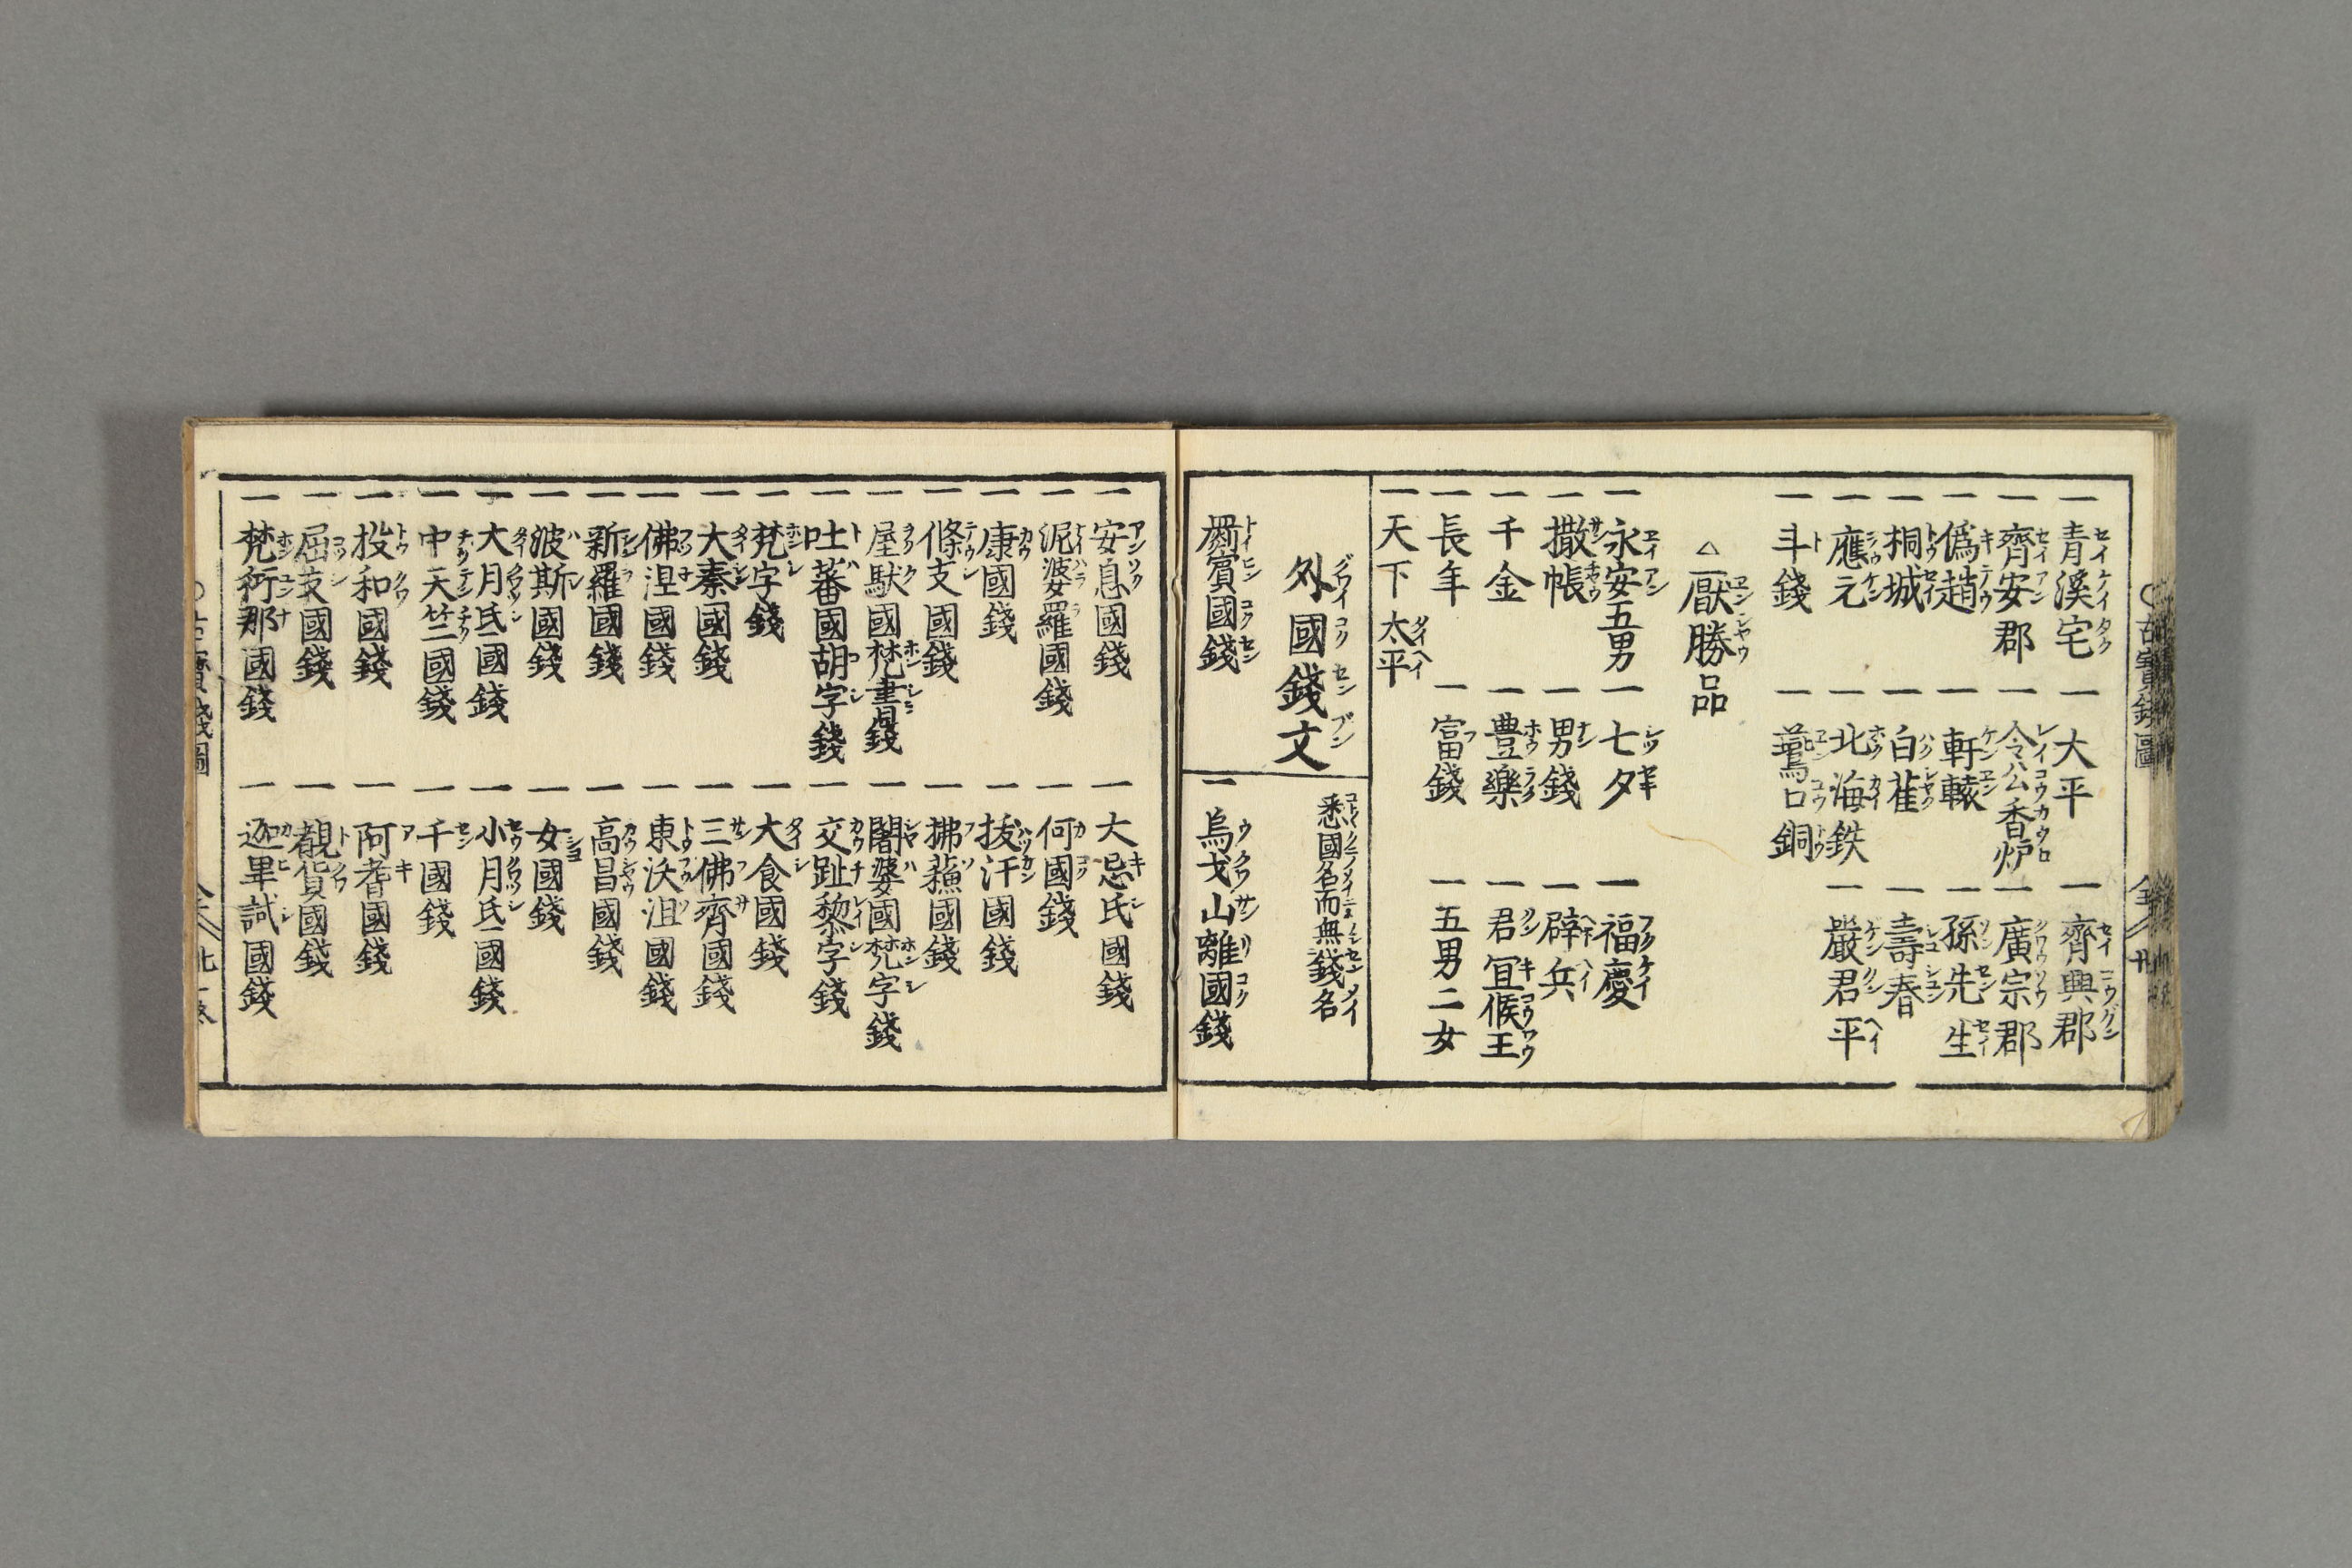 一青溪宅 一大平 一齊興郡
一齊安郡 一令公香炉 一廣宗郡
一偽趙 一軒轅 一孫先生
一桐城 一白雀 一壽春
一應元 一北海鉄 一嚴君平
一斗錢 一鷰口銅
△厭勝品
一永安五男 一七夕 一福慶
一撒帳 一男錢 一辟兵
一千金 一豊樂 一君冝候王
一長年 一富錢 一五男二女
一天下太平
外國錢文
悉國名而無錢名
罽賓國錢 一烏戈山離國錢
一安息國錢 一大忌氏國錢
一泥婆羅國錢 一何國錢
一康國錢 一拔汗國錢
一條支國錢 一拂菻國錢
一屋馱國梵書錢 一闍婆國梵字錢
一吐蕃國胡字錢 一交趾黎字錢
一梵字錢 一大食國錢
一大秦國錢 一三佛齊國錢
一佛涅國錢 一東沃沮國錢
一新羅國錢 一高昌國錢
一波斯國錢 一女國錢
一大月氏國錢 一小月氏國錢
一中天竺國錢 一千國錢
一投和國錢 一阿耆國錢
一屈支國錢 一覩貨國錢
一梵衍那國錢 一迦畢試國錢